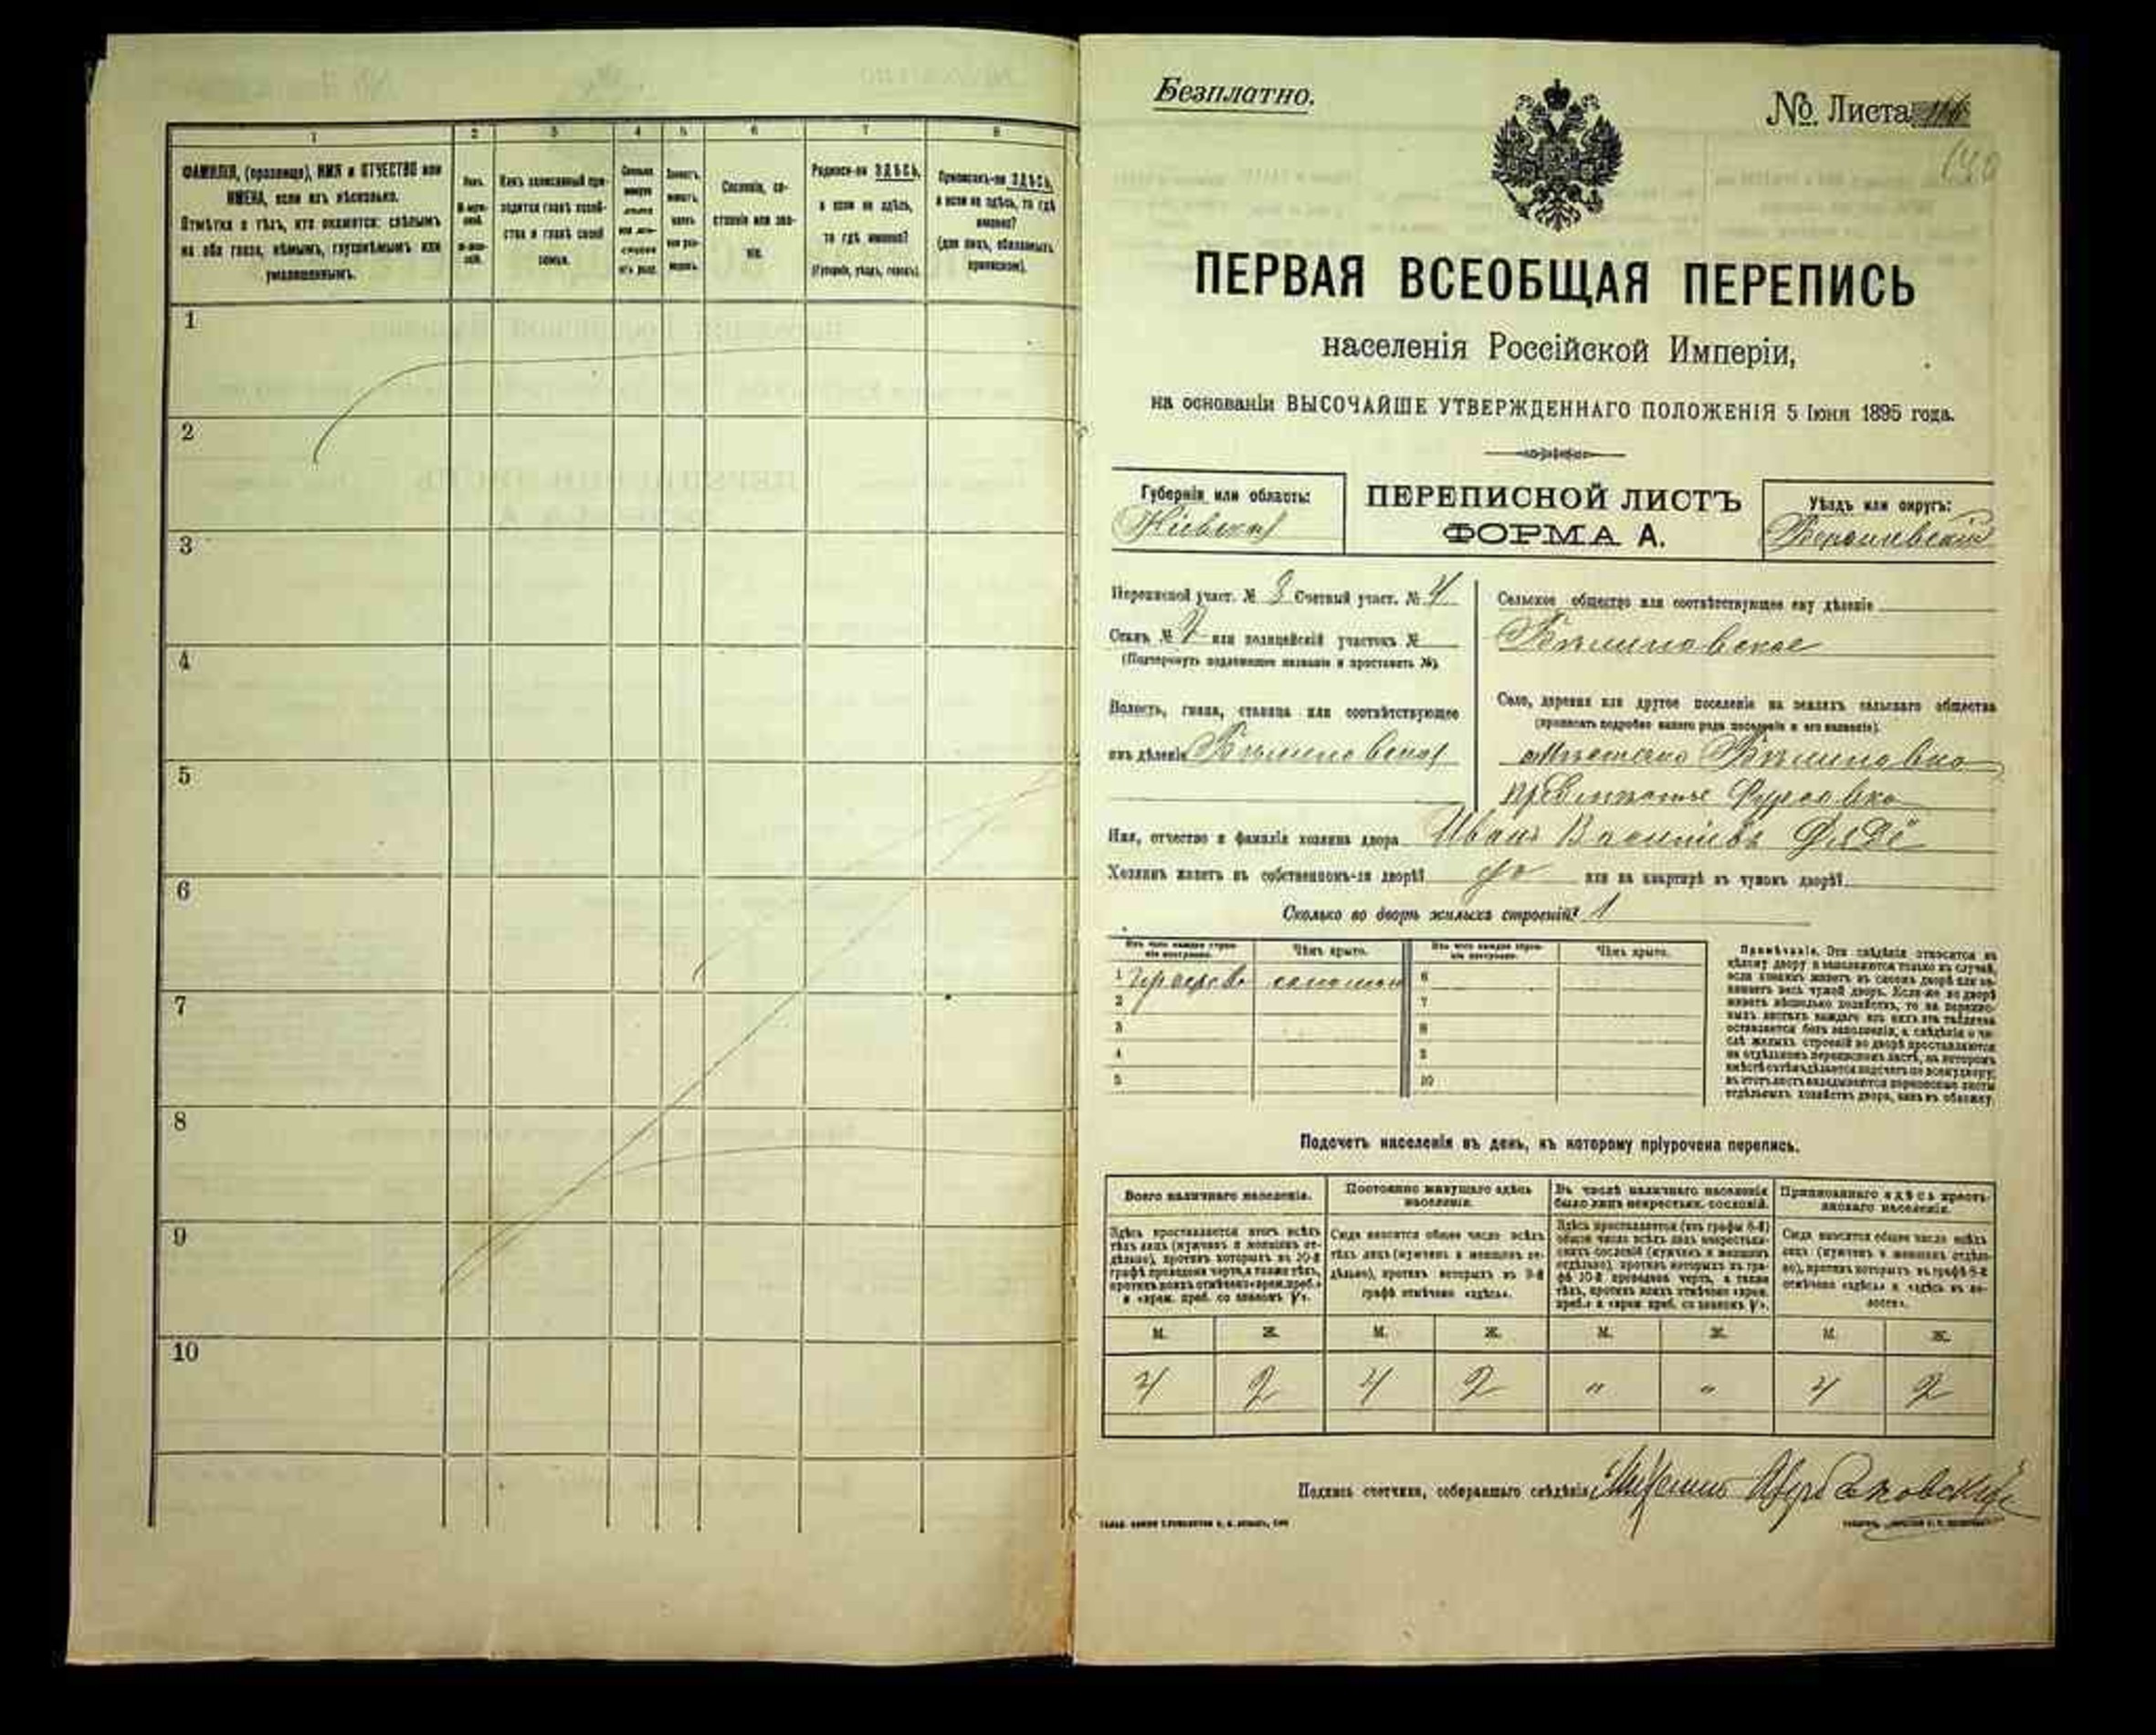 1 2 3 4 5 6 7 8
ФАМИЛІЯ, (прозвище), ИМЯ и ОТЧЕСТВО или
ИМЕНА, если ихъ нѣсколько.
Отмѣтка о тѣхъ, кто окажется: слѣпымъ
на оба глаза, нѣмымъ, глухонѣмымъ или
умалишеннымъ.
Какъ записанный при-
ходится главѣ хозяй-
ства и главѣ своей
семьи.
Сословіе, со-
стояніе или зва-
ніе.
Родился-ли ЗДѢСЬ,
а если не здѣсь,
то гдѣ именно?
(Губернія, уѣздъ, городъ).
Приписанъ-ли ЗДѢСЬ,
а если не здѣсь, то гдѣ
именно?
(для лицъ, обязанныхъ
припискою).
1
2
3
4
5
6
7
8
9
10
Безплатно.
№ Листа
140
ПЕРВАЯ ВСЕОБЩАЯ ПЕРЕПИСЬ
населенія Россійской Имперіи,
на основаніи ВЫСОЧАЙШЕ УТВЕРЖДЕННАГО ПОЛОЖЕНІЯ 5 Іюня 1895 года.
Губернія или область:
Кіевская
ПЕРЕПИСНОЙ ЛИСТЪ
ФОРМА А.
Уѣздъ или округъ:
Переписной участ. № 3 Счетный участ. № 4
Станъ № 2 или полицейскій участокъ №
(Подчеркнуть подлежащее названіе и проставить №).
Волость, гмина, станица или соотвѣтствующее
имъ дѣленіе
Сельское общество или соотвѣтствующее ему дѣленіе
Село, деревня или другое поселеніе на земляхъ сельскаго общества
(прописать подробно какого рода поселеніе и его названіе).
Имя, отчество и фамилія хозяина двора Иванъ
Хозяинъ живетъ въ собственномъ-ли дворѣ? или на квартирѣ въ чужомъ дворѣ?
Сколько во дворѣ жилыхъ строеній? 1
Изъ чего каждое строе-
ніе построено.
Чѣмъ крыто.
Изъ чего каждое строе-
ніе построено.
Чѣмъ крыто.
1 6
2 7
3 8
4 9
5 10
Примѣчаніе. Эти свѣдѣнія относятся къ
цѣлому двору и заполняются только въ случаѣ,
если хозяинъ живетъ въ своемъ дворѣ или за-
нимаетъ весь чужой дворъ. Если-же во дворѣ
живетъ нѣсколько хозяйствъ, то на перепис-
ныхъ листахъ каждаго изъ нихъ эта табличка
оставляется безъ заполненія, а свѣдѣнія о чи-
слѣ жилыхъ строеній во дворѣ проставляются
на отдѣльномъ переписномъ листѣ, на которомъ
вмѣстѣ съ тѣмъ дѣлается подсчетъ по всему двору;
въ этотъ листъ вкладываются переписные листы
отдѣльныхъ хозяйствъ двора, какъ въ обложку.
Подсчетъ населенія въ день, къ которому пріурочена перепись.
Всего наличнаго населенія.
Здѣсь проставляется итогъ всѣхъ
тѣхъ лицъ (мужчинъ и женщинъ от-
дѣльно), противъ которыхъ въ 10-й
графѣ проведена черта, а также тѣхъ,
противъ коихъ отмѣчено «врем. преб.»
и «врем. преб. со знакомъ V».
Постоянно живущаго здѣсь
населенія.
Сюда вносится общее число всѣхъ
тѣхъ лицъ (мужчинъ и женщинъ от-
дѣльно), противъ которыхъ въ 9-й
графѣ отмѣчено «здѣсь».
Въ числѣ наличнаго населенія
было лицъ некрестьян. сословій.
Здѣсь проставляется (изъ графы 6-й)
общее число всѣхъ лицъ некрестьян-
скихъ сословій (мужчинъ и женщинъ
отдѣльно), противъ которыхъ въ гра-
фѣ 10-й проведена черта, а также
тѣхъ, противъ коихъ отмѣчено «врем.
преб.» и «врем. преб. со знакомъ V».
Приписаннаго здѣсь кресть-
янскаго населенія.
Сюда вносится общее число всѣхъ
лицъ (мужчинъ и женщинъ отдѣль-
но), противъ которыхъ въ графѣ 8-й
отмѣчено «здѣсь» и «здѣсь въ во-
лости».
М. Ж. М. Ж. М. Ж. М. Ж.
4 2 4 2 " " 4 2
Подпись счетчика, собиравшаго свѣдѣнія